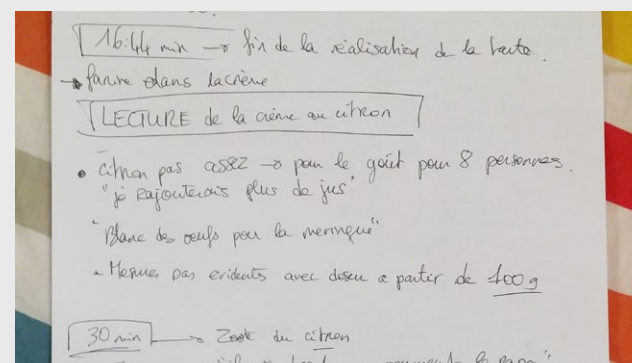 16:44 min → fin de la réalisation de la tarte.
→ farine dans la crème
LECTURE de la crème au citron
• citron pas assez → pour le goût pour 8 personnes.
"je rajouterais plus de jus"
"Blanc des oeufs pour la meringue"
- Mesures pas evidents avec doseur a partir de 100g
30 min → Zeste du citron